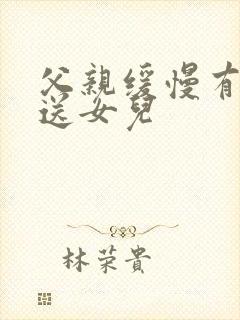 父親缓慢有
送女兒
林荣貴